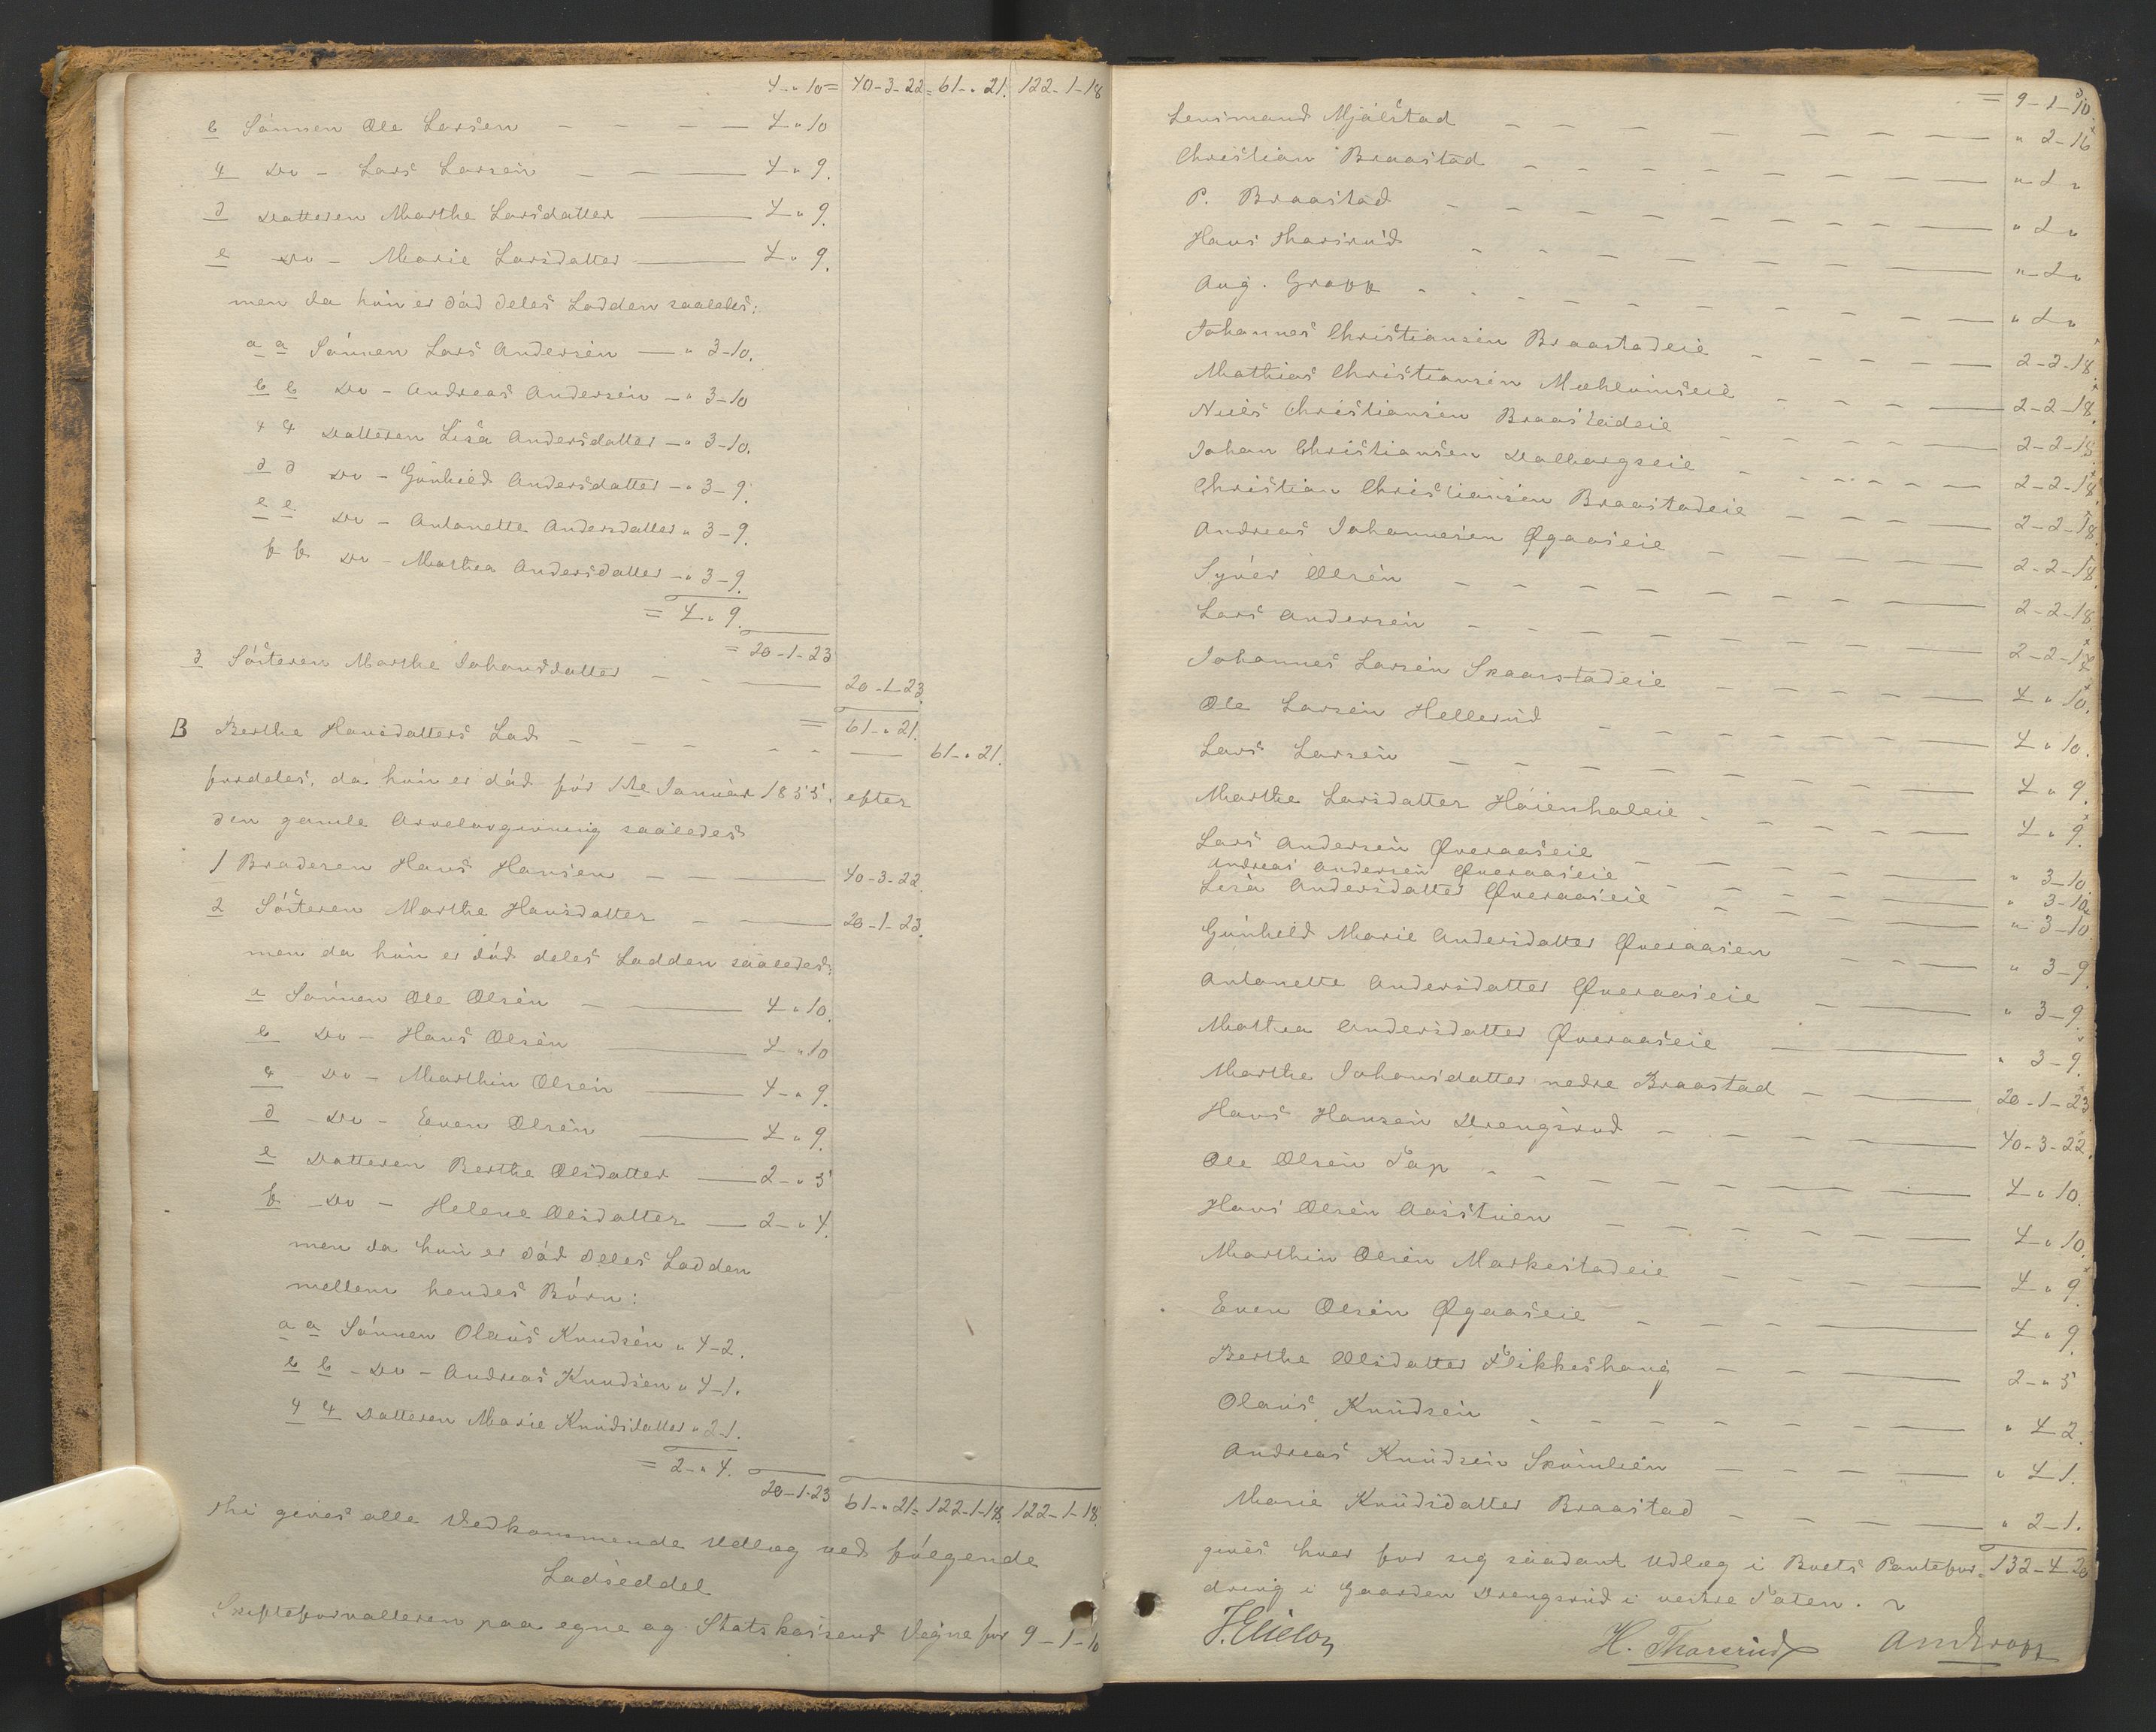 4-"10= 40-3-22= 61-"21. 122-1-18
b Sønnen Ole Larsen — 4-"10
c Do - Lars Larsen — 4-"9.
d Datteren Marthe Larsdatter — 4-"9.
e Do - Marie Larsdatter — 4-"9.
men da hun er død deles Lodden saaledes:
a a Sønnen Lars Andersen — " 3-10.
b b Do - Andreas Andersen — " 3-10
c c Datteren Lisa Andersdatter — " 3-10.
d d Do - Gunhild Andersdatter — " 3-9.
e e Do - Antonette Andersdatter " 3-9.
f f Do - Mathea Andersdatter — " 3-9.
= 4-"9.
= 20-1-23
3 Søsteren Marthe Johansdatter — 20-1-23.
= 61-"21.
B Berthe Hansdatters Lod — 61-"21.
fordeles, da hun er død før 1ste Januar 1855, efter
den gamle Arvelovgivning saaledes
1 Broderen Hans Hansen — 40-3-22.
2 Søsteren Marthe Hansdatter — 20-1-23.
men da hun er død deles Lodden saaledes:
a Sønnen Ole Olsen — 4-"10.
b Do - Hans Olsen — 4-"10
c Do - Marthin Olsen — 4-"9.
d Do - Even Olsen — 4-"9.
e Datteren Berthe Olsdatter — 2-"5
f Do - Helene Olsdatter — 2-"4.
men da hun er død deles Lodden
mellem hendes Børn:
a a Sønnen Olaus Knudsen " 4-2.
b b - Do - Andreas Knudsen " 4-1.
c c Datteren Marie Knudsdatter " 2-1.
= 2-"4.
20-1-23 61-"21= 122-1-18. 122-1-18.
Thi gives alle Vedkommende Udlæg ved følgende
Lodseddel
Skifteforvalteren paa egne og Statskassens Vegne for 9-1-10
= 9-1-10.
Lensmand Mjølstad — " 2-16
Christian Braastad — " 1 "
P. Braastad — " 1 "
Hans Tharsrud — " 1 "
Aug. Gropp — " 1 "
Johannes Christiansen Braastadeie — 2-2-18.
Mathias Christiansen Mæhlumseie — 2-2-18.
Niels Christiansen Braastadeie — 2-2-18
Johan Christiansen Dalborgseie — 2-2-18.
Christian Christiansen Braastadeie — 2-2-18.
Andreas Johannesen Øgaaseie — 2-2-18.
Syver Olsen — 2-2-18.
Lars Andersen — 2-2-17
Johannes Larsen Skaarstadeie — 4-"10.
Ole Larsen Hellerud — 4-"10.
Lars Larsen — 4-"9.
Marthe Larsdatter Høienhaleie — 4-"9.
Lars Andersen Øveraaseie — " 3-10.
Andreas Andersen Øveraaseie — " 3-10.
Lisa Andersdatter Øveraaseie — " 3-10.
Gunhild Marie Andersdatter Øveraasen — " 3-9.
Antonette Andersdatter Øveraaseie — " 3-9.
Mathea Andersdatter Øveraaseie — " 3-9.
Marthe Johansdatter nedre Braastad — 20-1-23
Hans Hansen Drengsrud — 40-3-22.
Ole Olsen Tap — 4-"10.
Hans Olsen Aasstuen — 4-"10.
Marthin Olsen Markestadeie — 4-"9.
Even Olsen Øgaaseie — 4-"9.
Berthe Olsdatter Flikkeshaug — 2-"5
Olaus Knudsen — " 4-2.
Andreas Knudsen Skumlien — " 4-1.
Marie Knudsdatter Braastad — " 2-1.
gives hver for sig saadant Udlæg i Boets Pantefor- 132-4-20
dring i Gaarden Drengsrud i vestre Toten.
H. Tharsrud